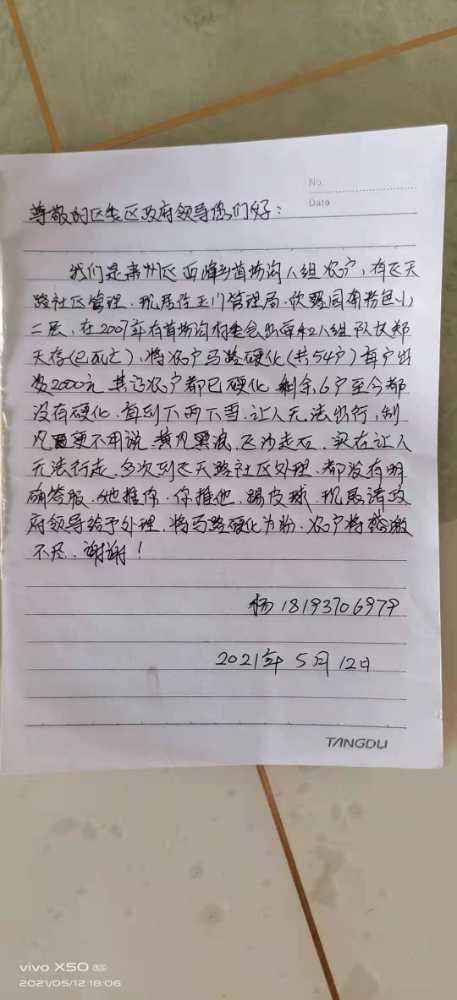 No.
Date
尊敬的区委区政府领导您们好:
我们是肃州区西峰乡首场沟八组农户,有飞天
路社区管理.现居住玉门管理局.
二层,在2007年有首场沟村委会出面和八组队长郑
天存(已死亡),将农户马路硬化(共54户)每户出
资2000元 其它农户都已硬化 剩余6户至今都
没有硬化.每到下雨下雪.让人无法出行,刮
风更不用说 黄风黑浪,飞沙走石,实在让人
无法行走,多次到飞天路社区处理.都没有明
确答服.他推你.你推他.踢皮球,现恳请政
府领导给予处理.将马路硬化为盼.农户将感激
不尽.谢谢!
杨18193706979
2021年5月12日
TANGDU
vivo X50 5G
2021/05/12 18:06